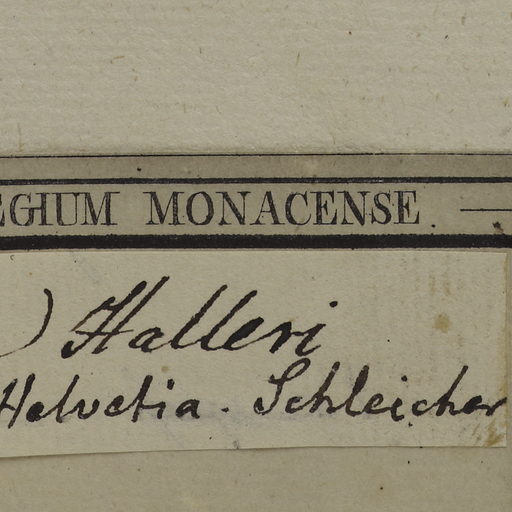 EGIUM MONACENSE
) Halleri
Helvetia. Schleicher